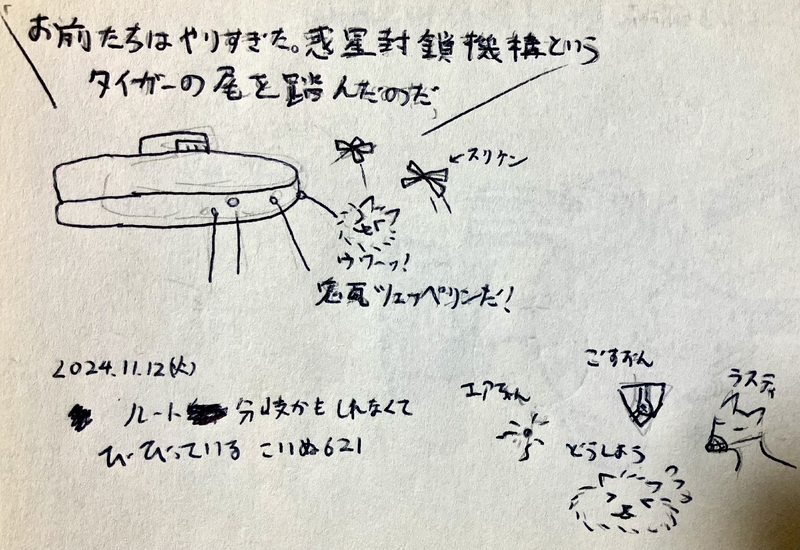 お前たちはやりすぎた。惑星封鎖機構という
タイガーの尾を踏んだのだ
スリケン
ウワーッ!
鬼瓦ツェッペリンだ!
2024.11.12(火)
ルート分岐かもしれなくて
びびっている こいぬ621
エアちゃん
ごすずん
ラスティ
どうしよう